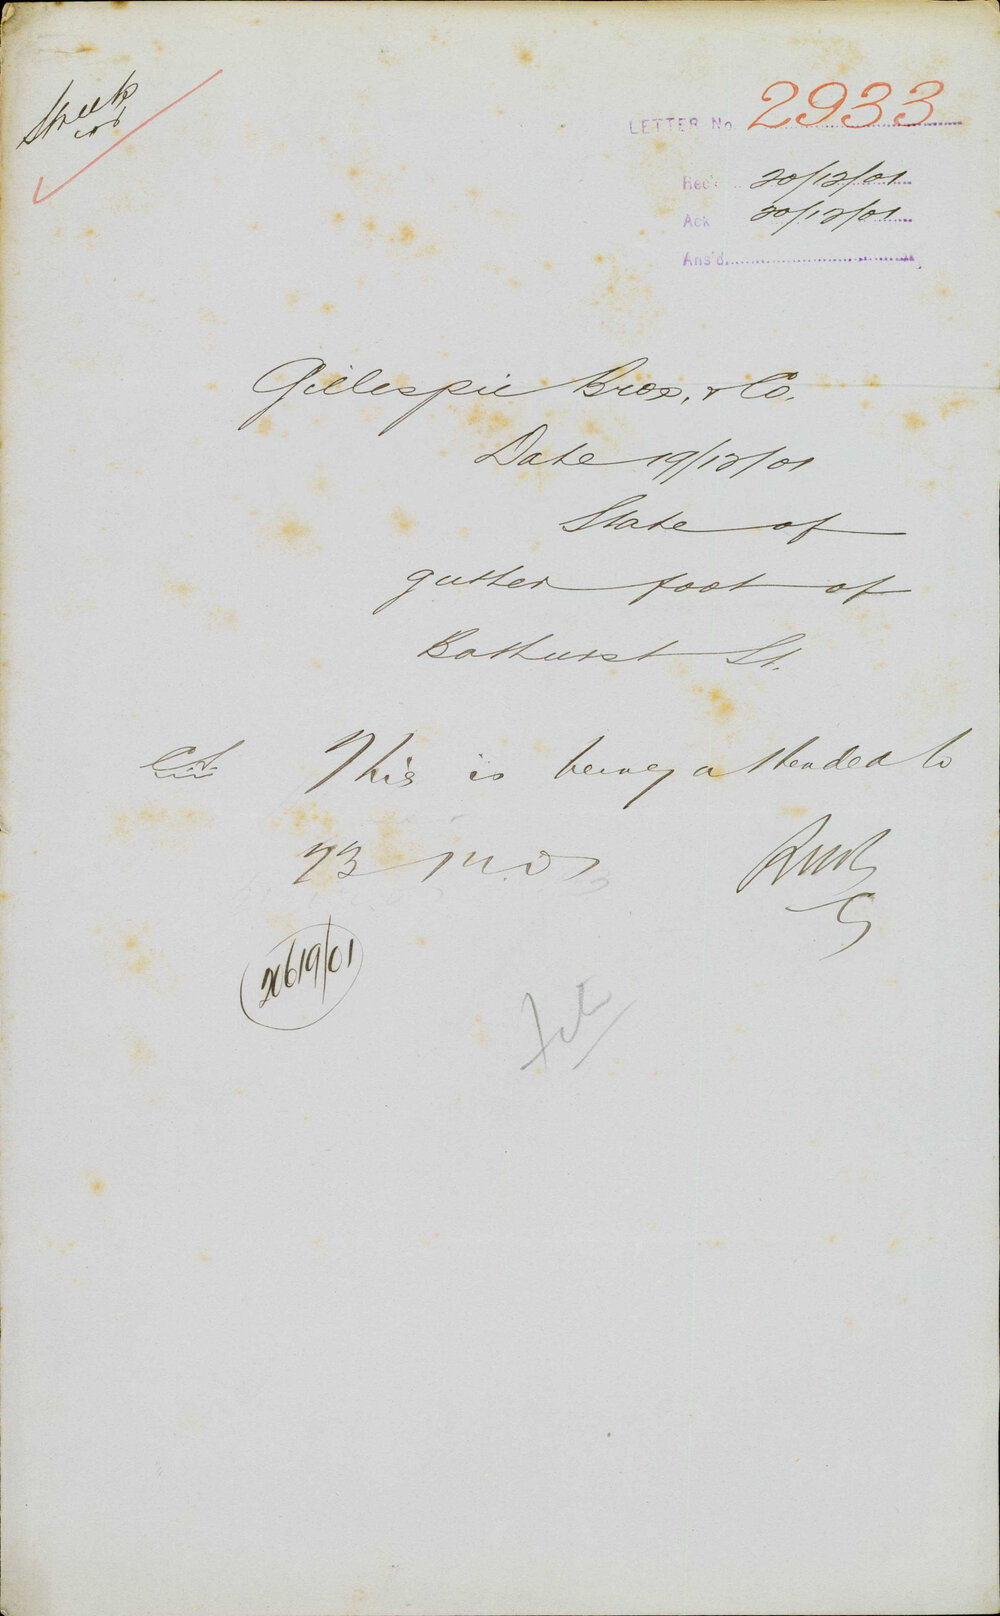 Streets
LETTER No. 2933
Rec'd 20/12/01
Ack 20/12/01
Ans'd
Gillespie Bros. & Co.
Date 19/12/01
State of
gutter foot of
Bathurst St.
This is being attended to
2619/01
File